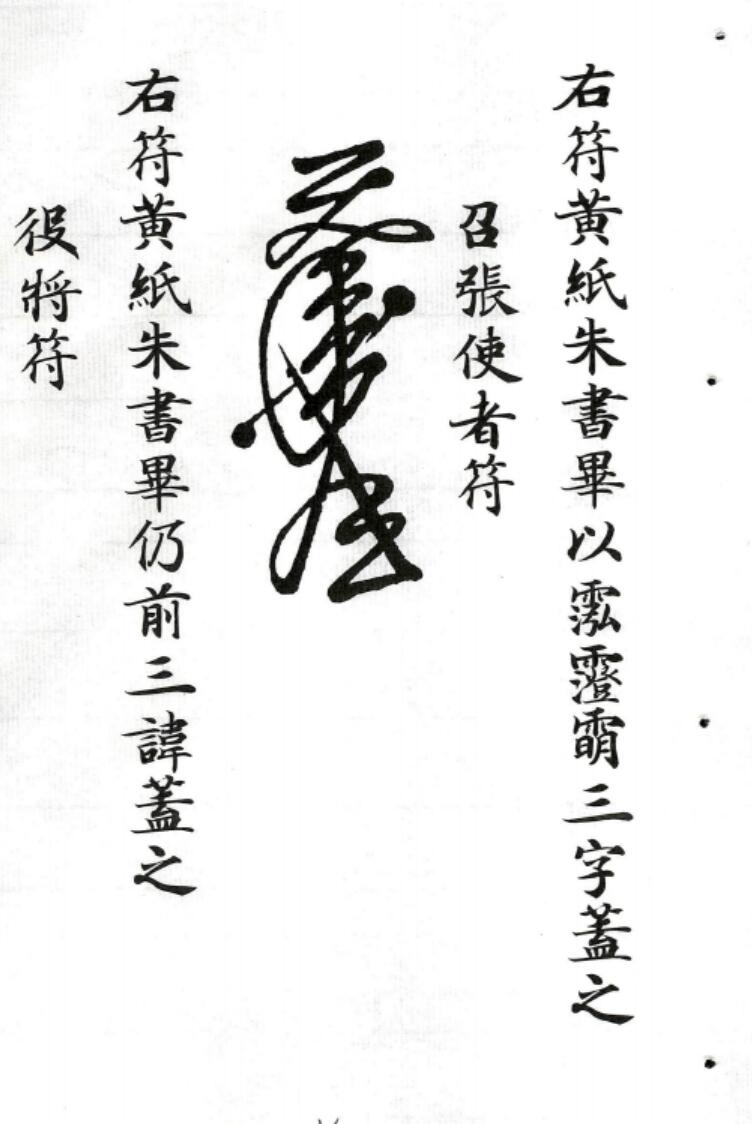 右符黃紙朱書畢以霐霿䨥三字蓋之
召張使者符
右符黃紙朱書畢仍前三諱蓋之
役將符